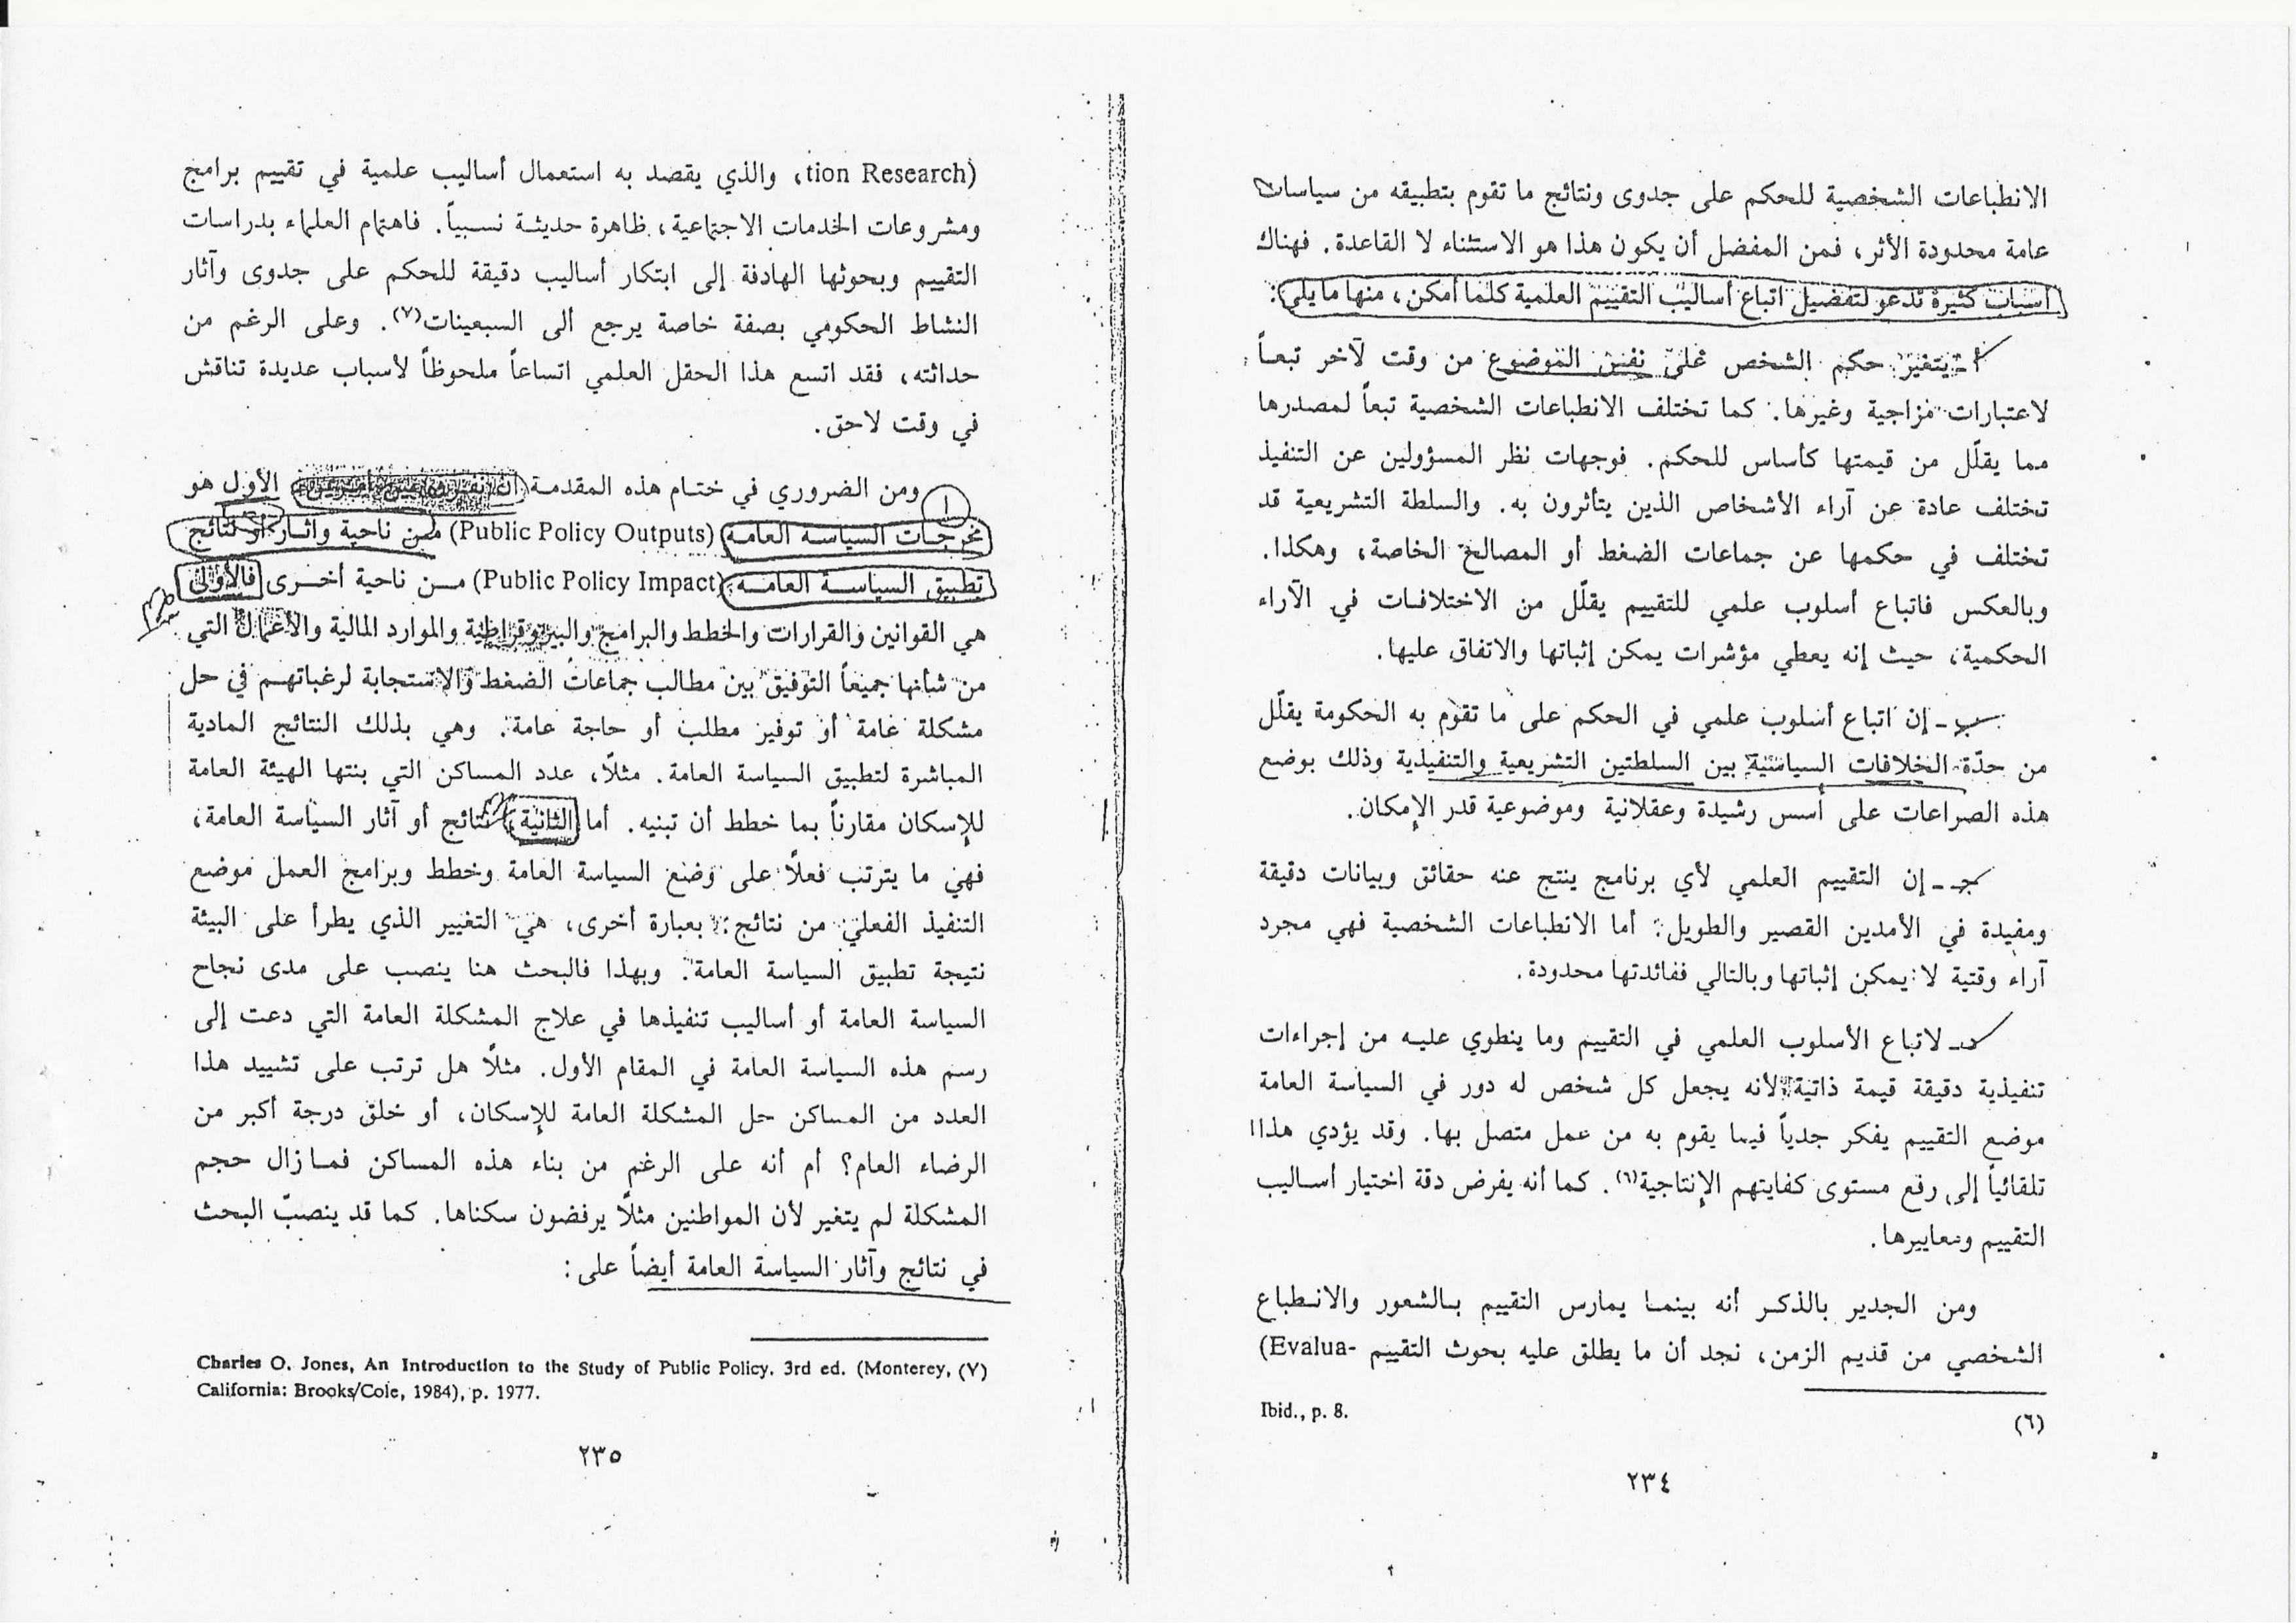 الانطباعات الشخصية للحكم على جدوى ونتائج ما تقوم بتطبيقه من سياسات
عامة محدودة الأثر، فمن المفضل أن يكون هذا هو الاستثناء لا القاعدة. فهناك
أسباب كثيرة تدعو لتفضيل اتباع أساليب التقييم العلمية كلما أمكن، منها ما يلي:
أ ـ يتغير حكم الشخص على نفس الموضوع من وقت لآخر تبعاً
لاعتبارات مزاجية وغيرها. كما تختلف الانطباعات الشخصية تبعاً لمصدرها
مما يقلّل من قيمتها كأساس للحكم. فوجهات نظر المسؤولين عن التنفيذ
تختلف عادة عن آراء الأشخاص الذين يتأثرون به. والسلطة التشريعية قد
تختلف في حكمها عن جماعات الضغط أو المصالح الخاصة، وهكذا.
وبالعكس فاتباع أسلوب علمي للتقييم يقلّل من الاختلافات في الآراء
الحكمية، حيث إنه يعطي مؤشرات يمكن إثباتها والاتفاق عليها.
ب ـ إن اتباع أسلوب علمي في الحكم على ما تقوم به الحكومة يقلّل
من حدّة الخلافات السياسية بين السلطتين التشريعية والتنفيذية وذلك بوضع
هذه الصراعات على أسس رشيدة وعقلانية وموضوعية قدر الإمكان.
جـ ـ إن التقييم العلمي لأي برنامج ينتج عنه حقائق وبيانات دقيقة
ومفيدة في الأمدين القصير والطويل. أما الانطباعات الشخصية فهي مجرد
آراء وقتية لا يمكن إثباتها وبالتالي ففائدتها محدودة.
د ـ لاتباع الأسلوب العلمي في التقييم وما ينطوي عليه من إجراءات
تنفيذية دقيقة قيمة ذاتية لأنه يجعل كل شخص له دور في السياسة العامة
موضع التقييم يفكر جدياً فيما يقوم به من عمل متصل بها. وقد يؤدي هذا
تلقائياً إلى رفع مستوى كفايتهم الإنتاجية(٦). كما أنه يفرض دقة اختيار أساليب
التقييم ومعاييرها.
ومن الجدير بالذكر أنه بينما يمارس التقييم بالشعور والانطباع
الشخصي من قديم الزمن، نجد أن ما يطلق عليه بحوث التقييم (Evalua-
(٦) Ibid., p. 8.
٢٣٤
tion Research)، والذي يقصد به استعمال أساليب علمية في تقييم برامج
ومشروعات الخدمات الاجتماعية، ظاهرة حديثة نسبياً. فاهتمام العلماء بدراسات
التقييم وبحوثها الهادفة إلى ابتكار أساليب دقيقة للحكم على جدوى وآثار
النشاط الحكومي بصفة خاصة يرجع ألى السبعينات(٧). وعلى الرغم من
حداثته، فقد اتسع هذا الحقل العلمي اتساعاً ملحوظاً لأسباب عديدة تناقش
في وقت لاحق.
ومن الضروري في ختام هذه المقدمة أن الأول هو
مخرجات السياسة العامة (Public Policy Outputs) من ناحية وآثار أو نتائج
تطبيق السياسة العامة (Public Policy Impact) من ناحية أخرى فالأولى
هي القوانين والقرارات والخطط والبرامج والبيروقراطية والموارد المالية والأعمال التي
من شأنها جميعاً التوفيق بين مطالب جماعات الضغط والاستجابة لرغباتهم في حل
مشكلة عامة أو توفير مطلب أو حاجة عامة. وهي بذلك النتائج المادية
المباشرة لتطبيق السياسة العامة. مثلاً، عدد المساكن التي بنتها الهيئة العامة
للإسكان مقارناً بما خطط أن تبنيه. أما الثانية، نتائج أو آثار السياسة العامة،
فهي ما يترتب فعلاً على وضع السياسة العامة وخطط وبرامج العمل موضع
التنفيذ الفعلي من نتائج. بعبارة أخرى، هي التغيير الذي يطرأ على البيئة
نتيجة تطبيق السياسة العامة. وبهذا فالبحث هنا ينصب على مدى نجاح
السياسة العامة أو أساليب تنفيذها في علاج المشكلة العامة التي دعت إلى
رسم هذه السياسة العامة في المقام الأول. مثلاً هل ترتب على تشييد هذا
العدد من المساكن حل المشكلة العامة للإسكان، أو خلق درجة أكبر من
الرضاء العام؟ أم أنه على الرغم من بناء هذه المساكن فما زال حجم
المشكلة لم يتغير لأن المواطنين مثلاً يرفضون سكناها. كما قد ينصبّ البحث
في نتائج وآثار السياسة العامة أيضاً على:
Charles O. Jones, An Introduction to the Study of Public Policy, 3rd ed. (Monterey, (٧)
California: Brooks/Cole, 1984), p. 1977.
٢٣٥